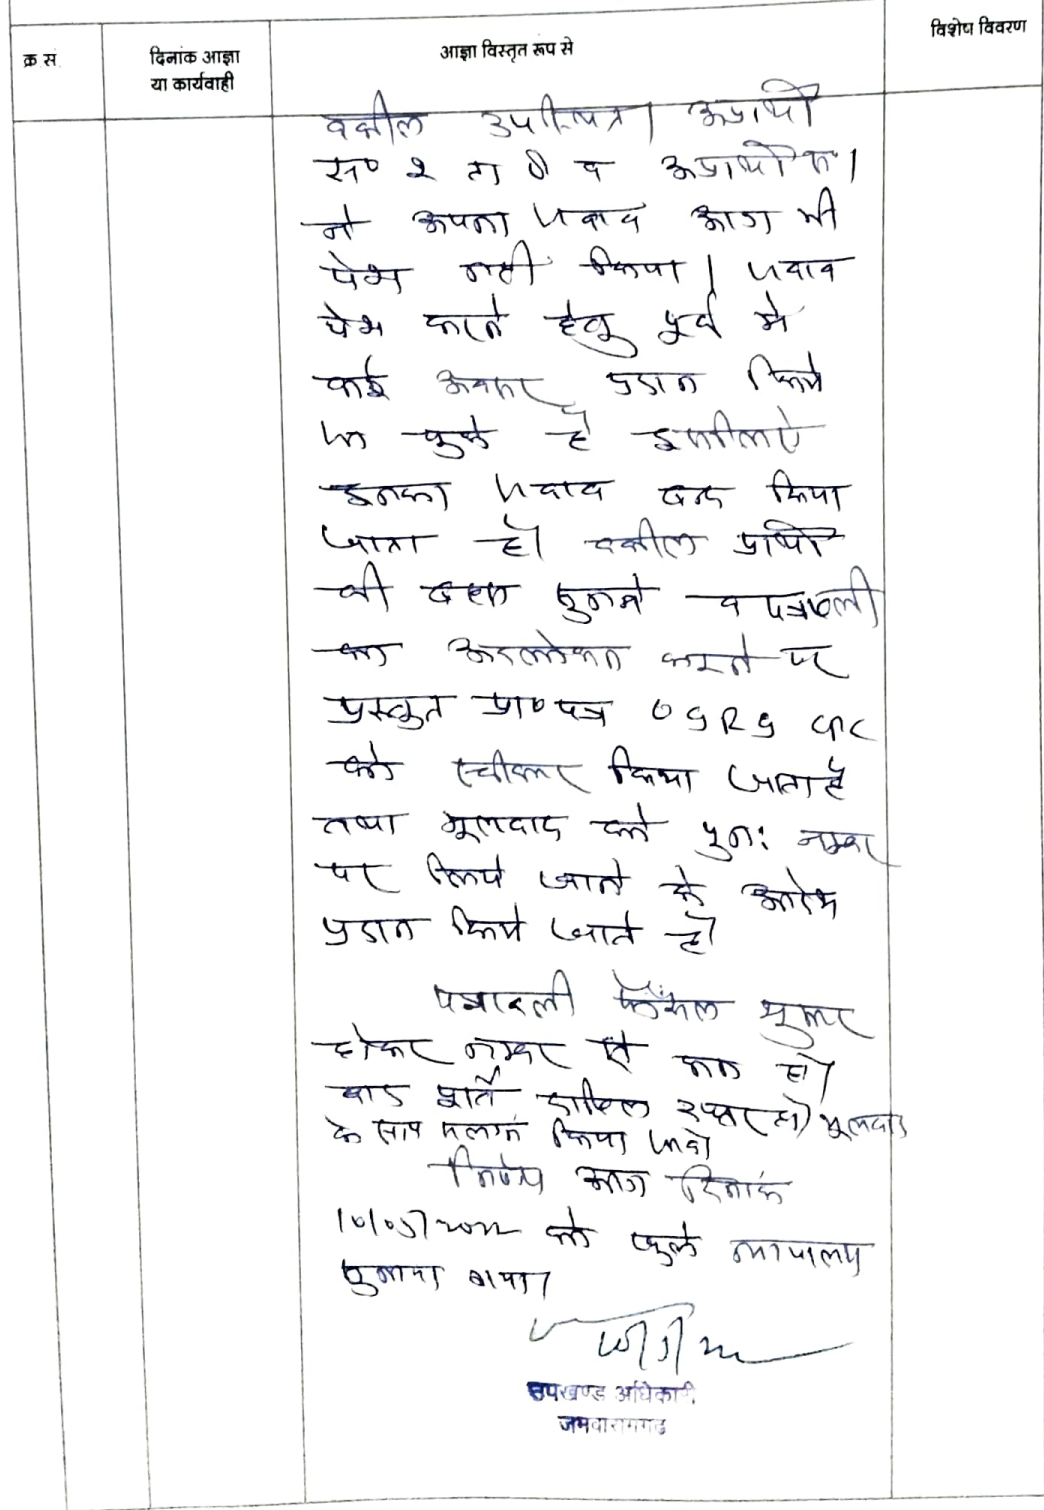 क्र सं.
दिनांक आज्ञा
या कार्यवाही
आज्ञा विस्तृत रूप से
विशेष विवरण
वकील उपस्थित। अप्रार्थी
स० २ ता व अप्रार्थी
ने अपना जवाब आज भी
पेश नही किया। जवाब
पेश करने हेतु पूर्व मे
कई अवसर प्रदान किये
जा चुके है इसलिए
इनका जवाब बन्द किया
जाता है। वकील प्रार्थी
की बहस सुनने व पत्रावली
का अवलोकन करने पर
प्रस्तुत प्रा० पत्र O9R9 CPC
को स्वीकार किया जाता है
तथा मूलवाद को पुनः नम्बर
पर लिये जाने के आदेश
प्रदान किये जाते है।
पत्रावली फैसल शुमार
होकर नम्बर से कम हो।
बाद दाखिल दफ्तर हो। मूलवाद
के साथ संलग्न किया जावे।
निर्णय आज दिनांक
10/05/2022 को खुले न्यायालय
सुनाया गया।
उपखण्ड अधिकारी
जमवारामगढ